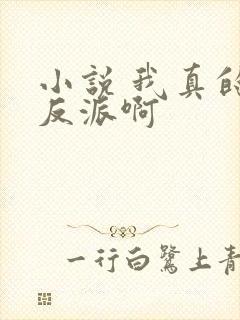 小説我真的
反派啊
一行白鷺上青